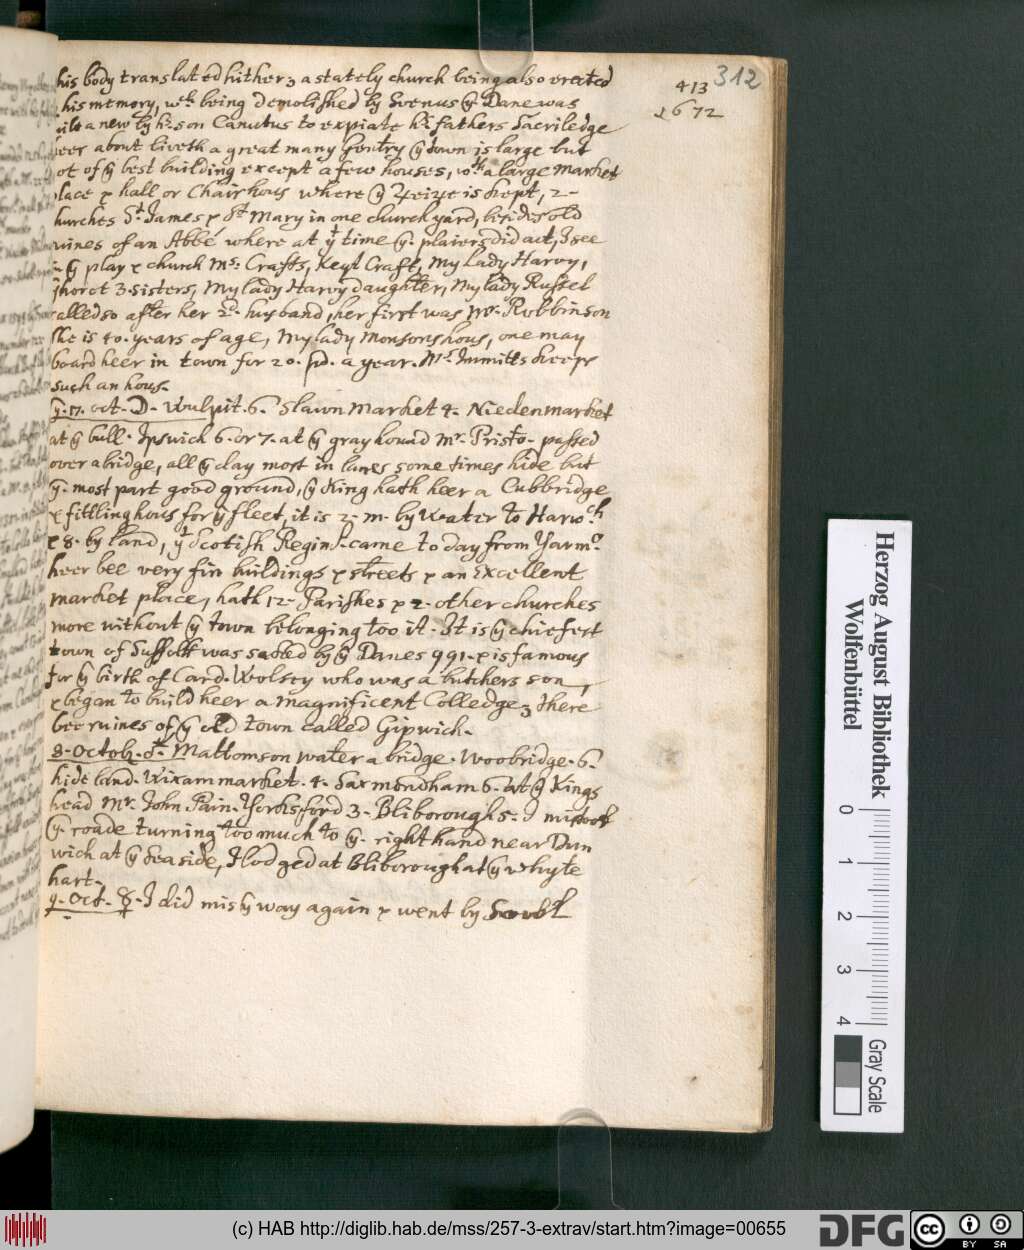 413 312
1672
his body translated hither; a stately church being also erected
his memory, wch. being demolished by Svenus ye Dane was
uilt a new by his son Canutus to expiate his fathers Sacriledge
heer about liveth a great many gentry ye town is large but
ot of ye best building except a few houses, wth. a large market
place & hall or Chair hous where ye is kept, 2-
hurches St. James & St Mary in one church yard, besides old
uines of an Abbé where at yt time ye. plaiers did act, I see
in ye play & church Mrs. Crafts, Keyt Craft, My Lady Harvy,
3 sisters, My lady Harvy daughter, My lady Russel
alled so after her 2d. husband, her first was Mr. Robbinson
she is 40. years of age, My lady Monsons hous, one may
board heer in town for 20. pd. a year. Mrs. Immitts keeps
such an hous.
ye. 17. oct. D. Wulpit. 6. Slawn Market 4. Nieden market
at ye bull. Ipswich 6. or 7. at ye gray hound Mr. Pristo. passed
over a bridge, all ye day most in lanes some times hide but
ye. most part good ground, ye King hath heer a Cubbridge
& fittling hous for ye fleet, it is 2. m. by water to Harw.ch
& 8. by land, ye Scotish Regint. came to day from Yarmo.
heer bee very fin buildings & streets & an Excellent
market place, hath 12. Parishes & 2. other churches
more without ye town belonging too it. It is ye chiefest
town of Suffolk was sacked by ye Danes 991. & is famous
for ye birth of Card. Wolsey who was a butchers son,
& began to build heer a magnificent Colledge; there
bee ruines of ye old town called Gipwich.
8. Octob. ♂. Mattomson water a bridge. Woobridge. 6.
hide land. Wixam market. 4. Saxmondham 6. at ye Kings
head Mr. John Pain. Yorksford 3. Bliboroughs. I mistook
ye. roade turning too much to ye. right hand near Dun
wich at ye Sea side, I lodged at Bliborough at ye whyte
hart.
9. Oct. ☿. I did mis ye way again & went by
Herzog August Bibliothek
Wolfenbüttel
0 1 2 3 4
Gray Scale
(c) HAB http://diglib.hab.de/mss/257-3-extrav/start.htm?image=00655
DFG
cc BY SA